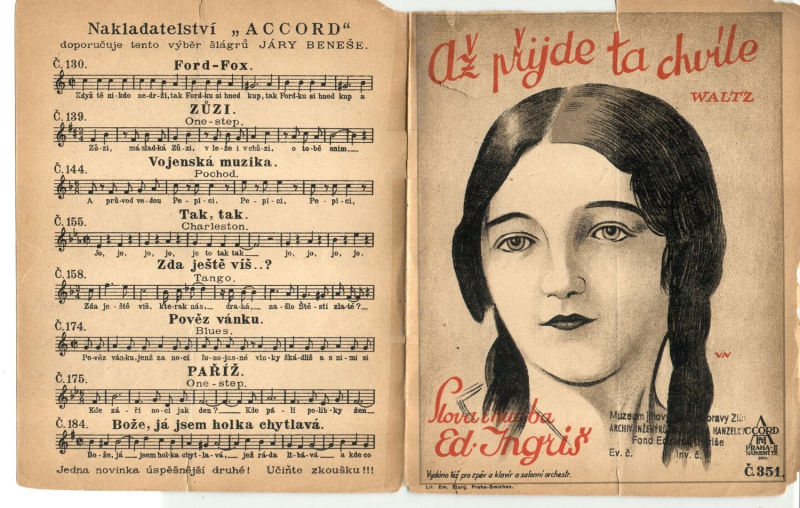 Nakladatelství „ACCORD“
doporučuje tento výběr šlágrů JÁRY BENEŠE.
Č. 130.
Ford-Fox.
Když tě ni-kdo ne-dr-ží, tak Ford-ku si hned kup, tak Ford-ku si hned kup a
Č. 139.
ZŮZI.
One-step.
Zů-zi, má sladká Zů-zi, v le-že i v chů-zi, o to-bě sním.
Č. 144.
Vojenská muzika.
Pochod.
A prů-vod ve-dou Pe-pí-ci, Pe-pí-ci, Pe-pí-ci,
Č. 155.
Tak, tak.
Charleston.
Jo, jo, jo, jo, je to tak tak jo, jo, jo, jo.
Č. 158.
Zda ještě víš..?
Tango.
Zda je-ště víš, kte-rak nás, dra-há, na-šlo Ště-stí zla-té?
Č. 174.
Pověz vánku.
Blues.
Po-věz ván-ku, jenž za no-ci lu-no-jas-né vln-ky šká-dlíš a s ni-mi si
Č. 175.
PAŘÍŽ.
One-step.
Kde zá-ří no-ci jak den? Kde pá-lí po-lib-ky žen
Č. 184.
Bože, já jsem holka chytlavá.
Bo-že, já jsem hol-ka chyt-la-vá, jež rá-da lí-bá-vá a kde co
Jedna novinka úspěšnější druhé! Učiňte zkoušku!!!
Až přijde ta chvíle
WALTZ
VN
Slova i hudba
Ed. Ingriš
Muzeum jihovýchodní Moravy Zlín
ARCHIV INŽENÝRŮ HANZELKY
Fond Eduarda Ingriše
Ev. č. Inv. č.
ACCORD
PRAHA-II
NÁRODNÍ TŘ.
Č. 351.
Vydáno též pro zpěv a klavír a salonní orchestr.
Lit. Em. Starý, Praha-Smíchov.